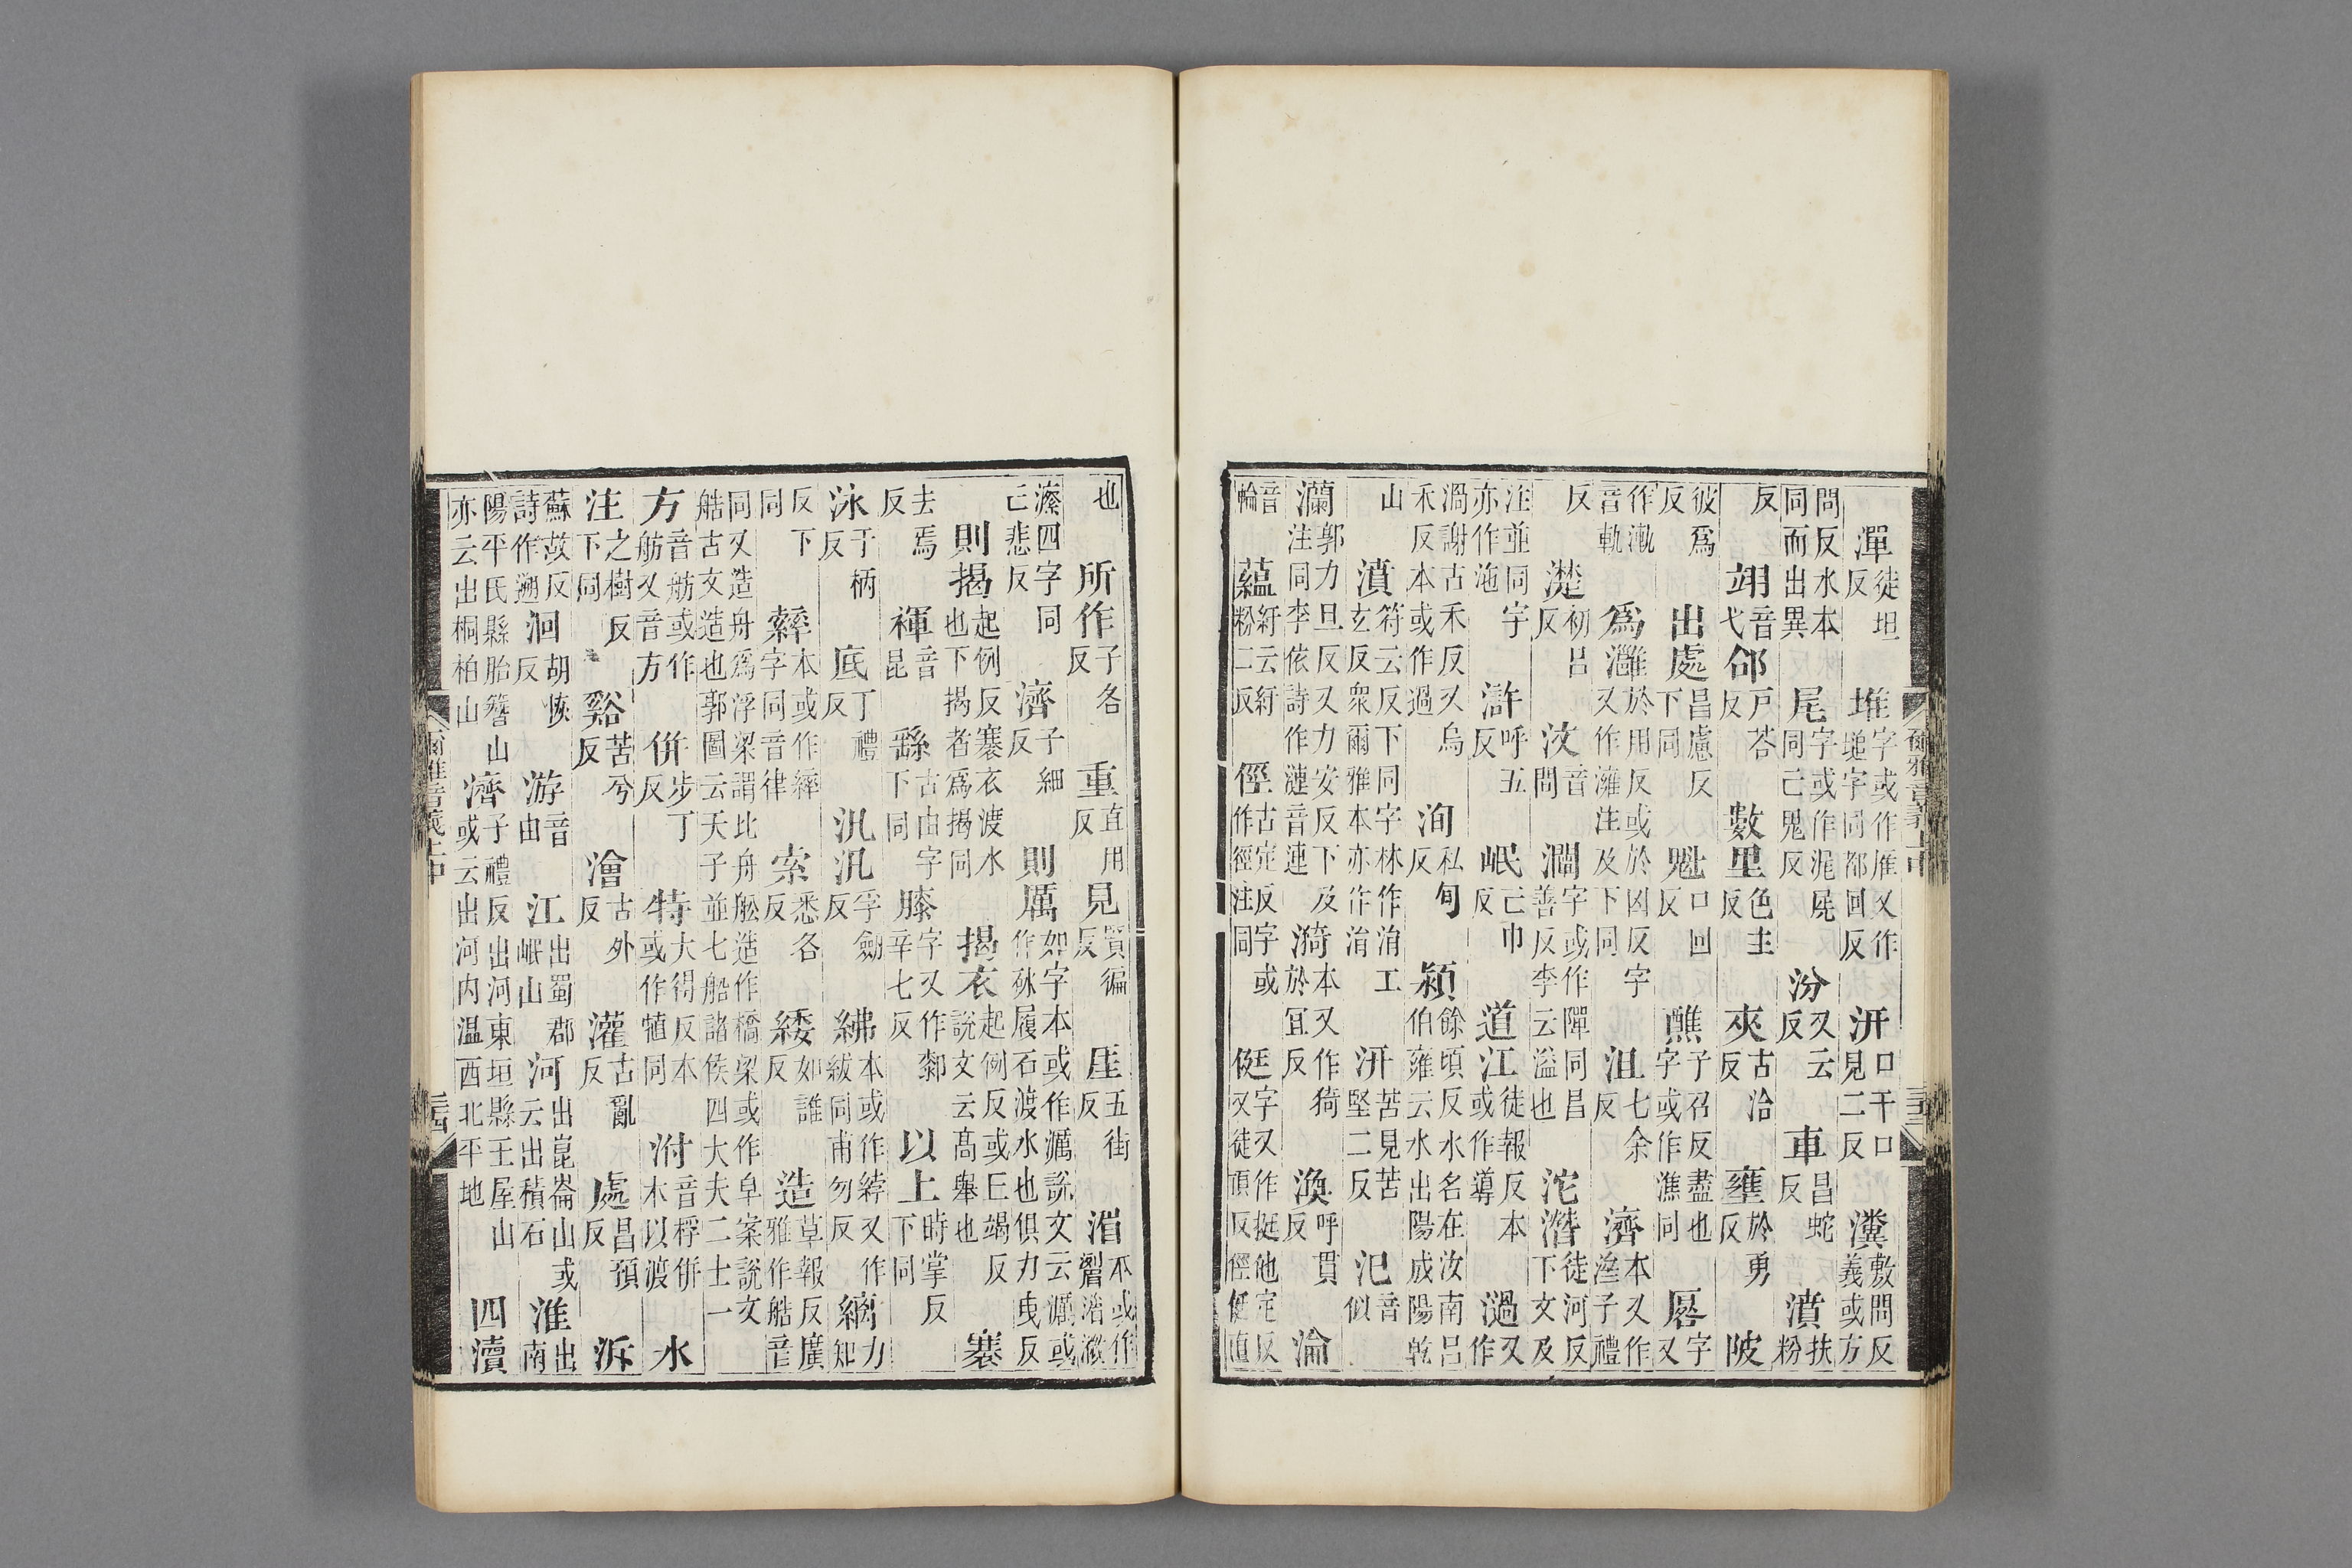 潬徒坦反堆字或作雁又作塠字同都回反汧口千口見二反瀵敷問反義或方
問反水本同而出異尾字或作浘𡲗同己鬼反汾又云反車昌蛇反濆扶粉
反翊音弋郃戸荅反數里色主反夾古洽反壅於勇反陂
彼爲反出處昌慮反下同魁口回反醮子召反盡也字或作潐同厬字又
作漸音軌爲灉於用反或於凶反字又作澭注及下同沮七余反濟本又作㴉子禮
反濋初呂反汶音問灛字或作闡同昌善反李云溢也沱潛徒河反下文及
注並同字亦作池滸呼五反岷亡巾反道江徒報反本或作導過又作
濄謝古禾反又烏禾反本或作過洵私旬反潁餘頃反水名在汝南呂伯雍云水出陽成陽乾
山濆符云反下同字林作涓工玄反衆爾雅本亦作涓汧苦見苦堅二反汜音似
瀾郭力旦反又力安反下及注同李依詩作漣音連漪本又作猗於宜反渙呼貫反淪
音輪蘊紆云紆粉二反徑古定反字或作徑注同侹字又作挺他定反又徒頂反徑侹直
也所作子各反重直用反見賢徧反厓五街反湝不或作
㵝四字同亡悲反濟子細反則厲如字本或作濿說文云濿或作砅履石渡水也俱力曳反
則揭起例反褰衣渡水也下揭者爲揭同揭衣起例反或丘竭反說文云高舉也褰
去焉反褌音昆繇古由字下同膝字又作䣛辛七反以上時掌反下同
泳于柄反底丁禮反汎汎孚劒反紼本或作綍又作紱同甫勿反縭力知
反下同繂本或作繂字同音律索悉各反緌如誰反造草報反廣雅作艁音
同又造舟爲浮梁謂比舟舩造作橋梁或作皁案說文艁古文造也郭圖云天子並七船諸侯四大夫二士一
方音舫或作舫又音方併步丁反特大得反本或作犆同泭音桴併木以渡水
注之樹反下同谿苦兮反澮古外反灌古亂反處昌預反泝
蘇故反詩作遡洄胡恢反游音由江出蜀郡岷山河出崑崙山或云出積石淮出南
陽平氏縣胎簪山亦云出桐柏山濟子禮反出河東垣縣王屋山或云出河内温西北平地四瀆
爾雅音義上中
爾雅音義上中
三三
三四